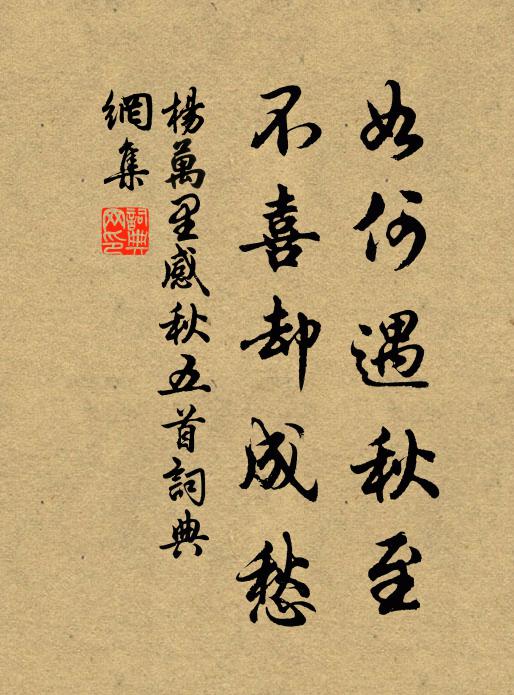 如何遇秋至
不喜却成愁
楊萬里感秋五首詞典
網集
詞典
网印